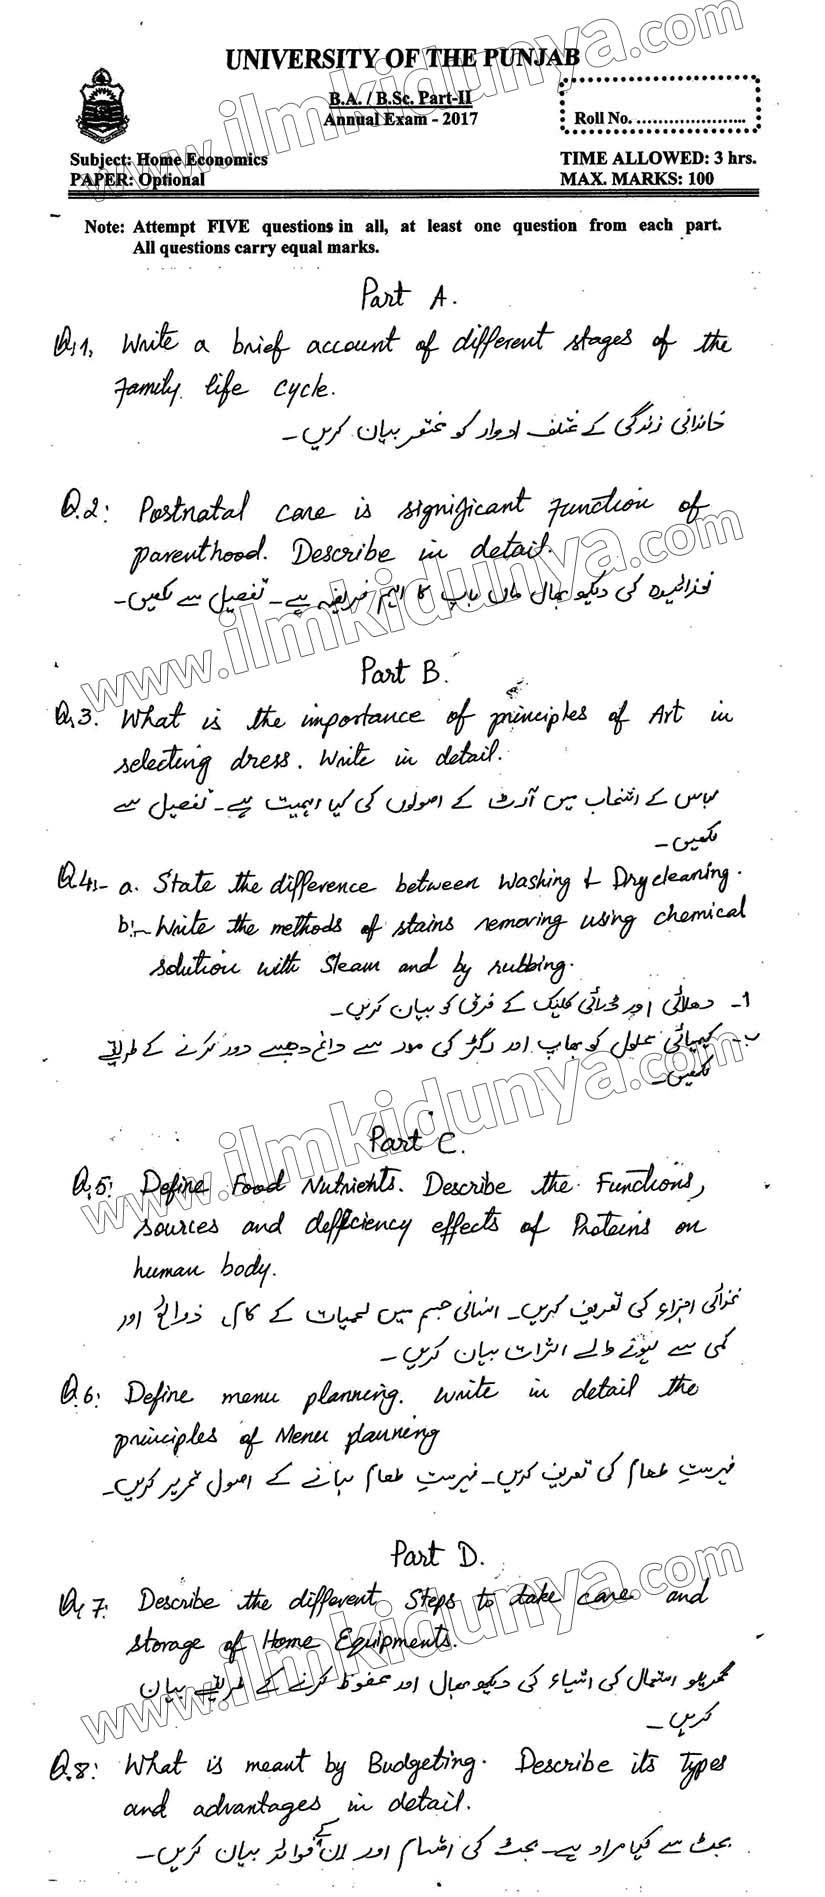 UNIVERSITY OF THE PUNJAB
B.A. / B.Sc. Part-II
Annual Exam - 2017
Roll No. .....................
Subject: Home Economics
PAPER: Optional
TIME ALLOWED: 3 hrs.
MAX. MARKS: 100
Note: Attempt FIVE questions in all, at least one question from each part.
All questions carry equal marks.
Part A.
Q.1, Write a brief account of different stages of the
Family life cycle.
خاندانی زندگی کے مختلف ادوار کو مختصر بیان کریں۔
Q.2: Postnatal care is significant function of
parenthood. Describe in detail.
نوزائیدہ کی دیکھ بھال ماں باپ کا اہم فریضہ ہے۔ تفصیل سے لکھیں۔
Part B.
Q.3. What is the importance of principles of Art in
selecting dress. Write in detail.
لباس کے انتخاب میں آرٹ کے اصولوں کی کیا اہمیت ہے۔ تفصیل سے
لکھیں۔
Q.4:- a. State the difference between Washing & Drycleaning.
b:- Write the methods of stains removing using chemical
solution with Steam and by rubbing.
ا۔ دھلائی اور ڈرائی کلینک کے فرق کو بیان کریں۔
ب۔ کیمیائی محلول کو بھاپ اور رگڑ کی مدد سے داغ دھبے دور کرنے کے طریقے
لکھیں۔
Part C.
Q.5: Define Food Nutrients. Describe the Functions,
sources and defficiency effects of Proteins on
human body.
غذائی اجزاء کی تعریف کریں۔ انسانی جسم میں لحمیات کے کام، ذرائع اور
کمی سے ہونے والے اثرات بیان کریں۔
Q.6: Define menu planning. Write in detail the
principles of Menu planning
فہرستِ طعام کی تعریف کریں۔ فہرستِ طعام بنانے کے اصول تحریر کریں۔
Part D.
Q.7: Describe the different Steps to take care and
storage of Home Equipments.
گھریلو استعمال کی اشیاء کی دیکھ بھال اور محفوظ کرنے کے طریقے بیان
کریں۔
Q.8: What is meant by Budgeting. Describe its Types
and advantages in detail.
بجٹ سے کیا مراد ہے۔ بجٹ کی اقسام اور ان کے فوائد بیان کریں۔
www.ilmkidunya.com
www.ilmkidunya.com
www.ilmkidunya.com
www.ilmkidunya.com